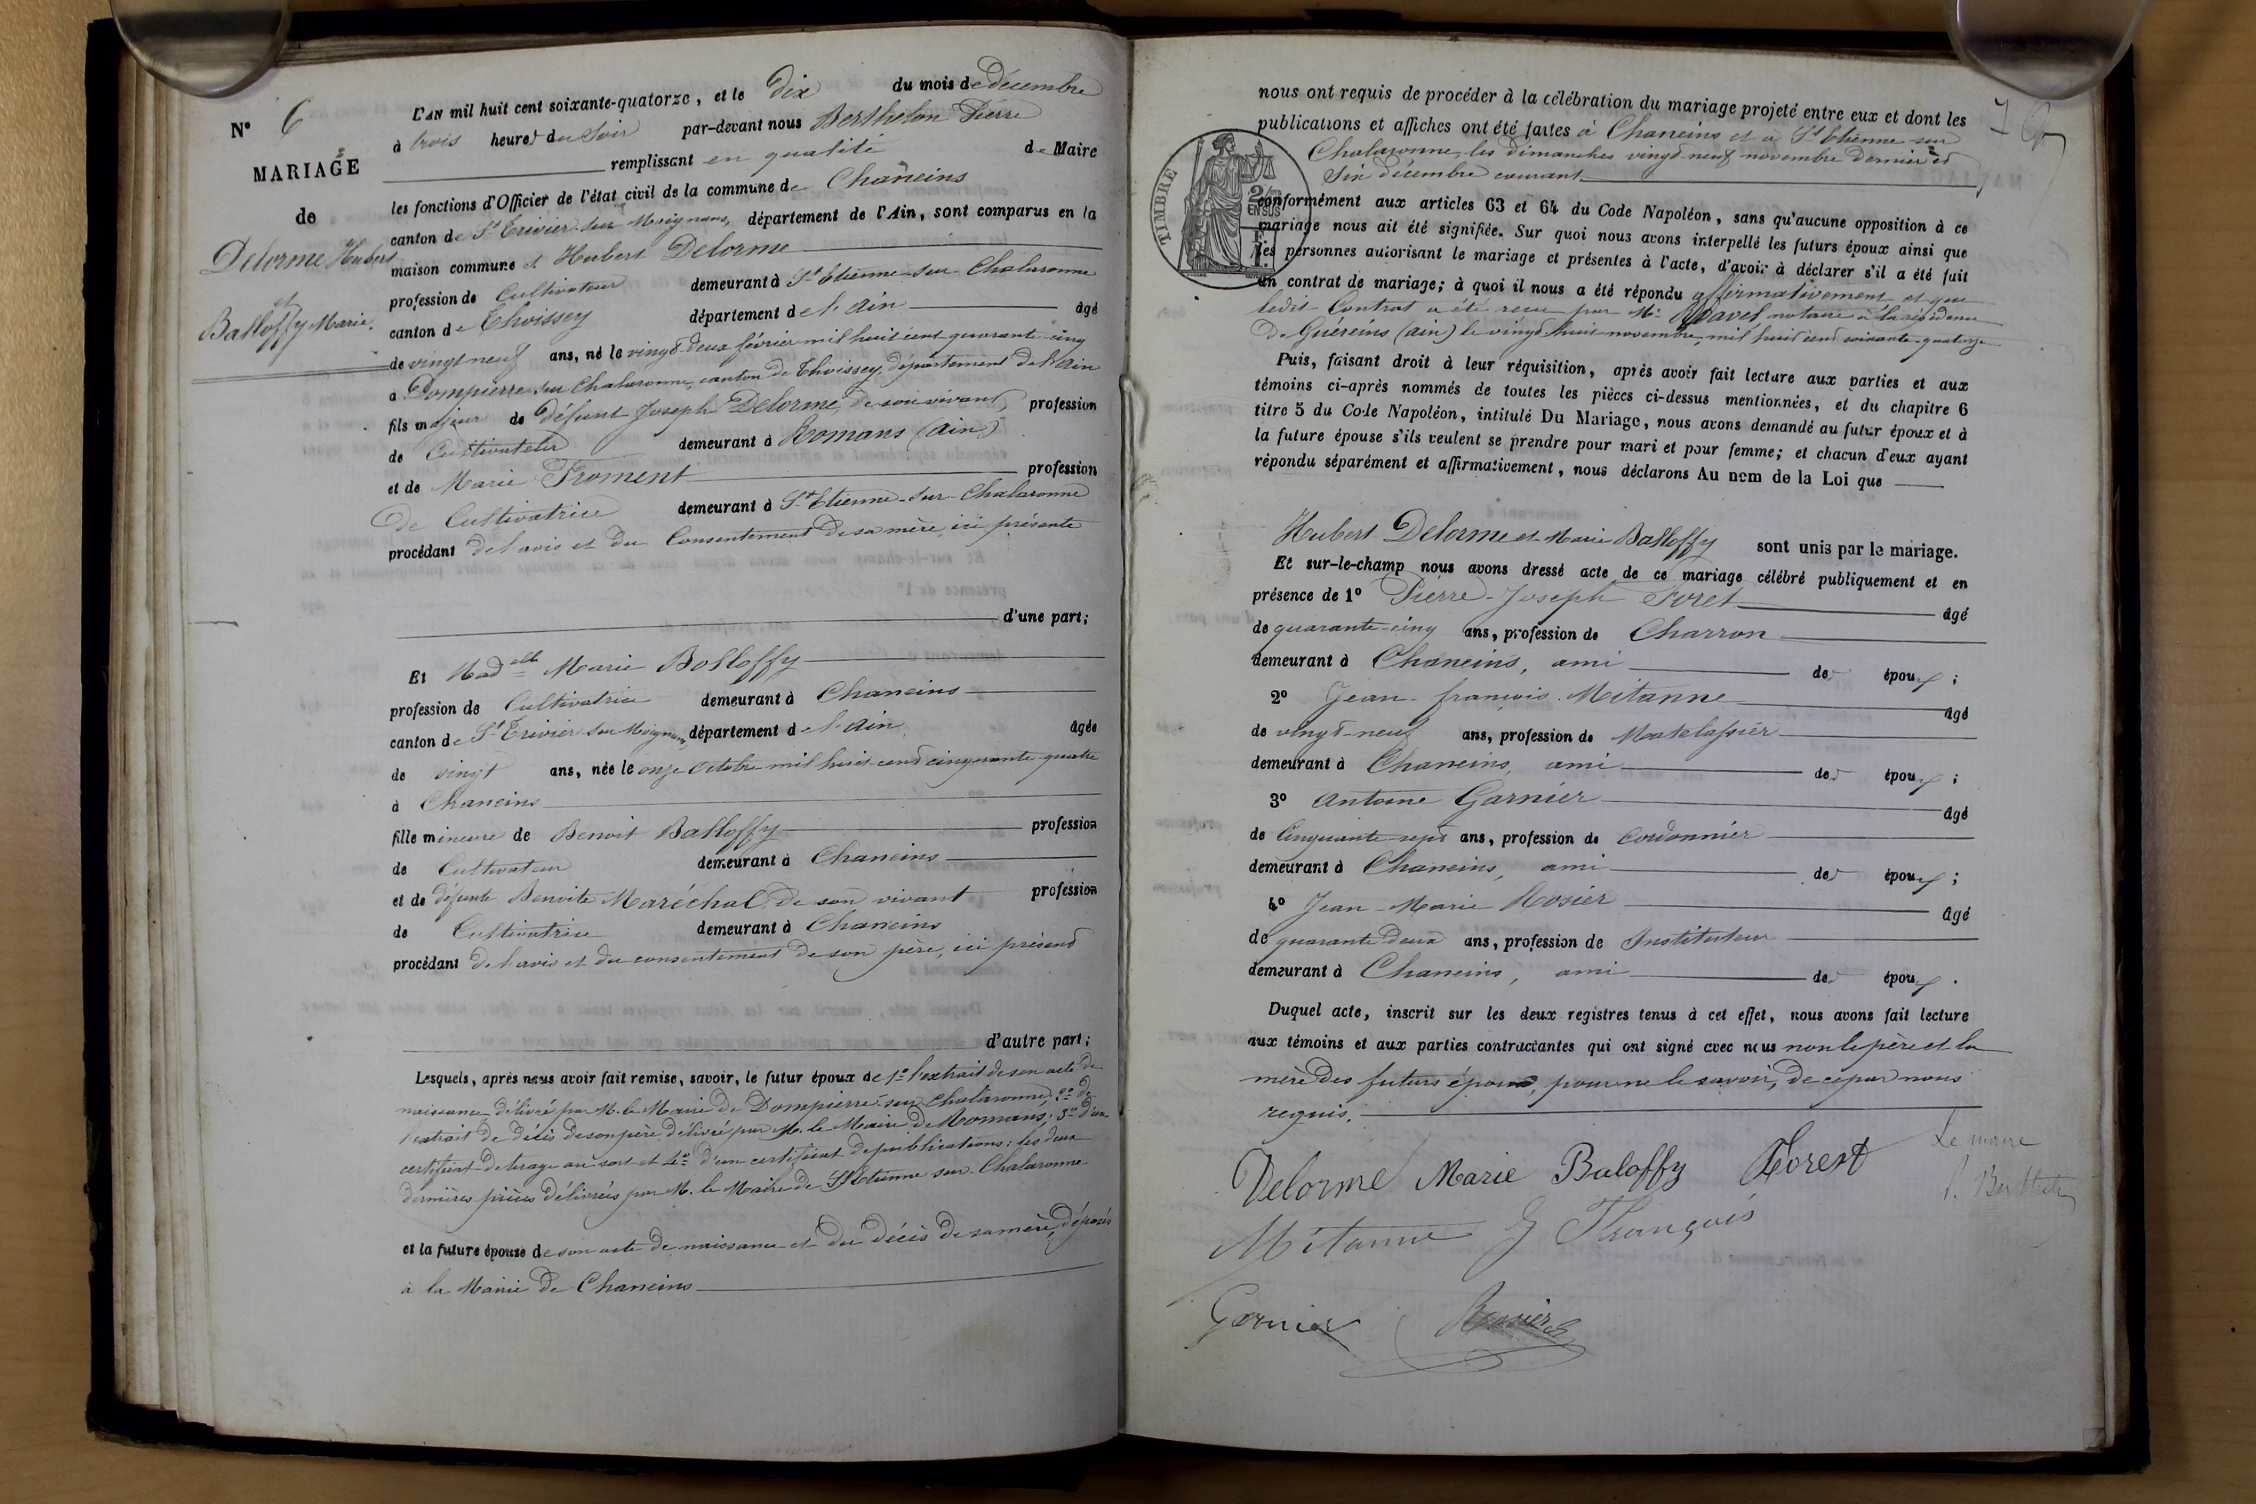 N° 6
MARIAGE
de
Delorme Hubert
et
Balloffy Marie.
L'AN mil huit cent soixante-quatorze, et le dix du mois de décembre
à trois heures du soir par-devant nous Berthelon Pierre
remplissant en qualité de Maire
les fonctions d'Officier de l'état civil de la commune de Chaneins
canton de St Trivier sur Moignans, département de l'Ain, sont comparus en la
maison commune et Hubert Delorme
profession de Cultivateur demeurant à St Etienne-sur-Chalaronne
canton de Thoissey département de l'Ain âgé
de vingt neuf ans, né le vingt-deux février mil huit cent quarante-cinq
à Dompierre-sur Chalaronne, canton de Thoissey, département de l'Ain
fils majeur de défunt Joseph Delorme, de son vivant, profession
de Cultivateur demeurant à Romans (Ain)
et de Marie Froment profession
de Cultivatrice demeurant à St Etienne-sur-Chalaronne
procédant de l'avis et du Consentement de sa mère, ici présente
d'une part;
Et Madelle Marie Balloffy
profession de Cultivatrice demeurant à Chaneins
canton de St Trivier sur Moignans, département de l'Ain, âgée
de vingt ans, née le onze Octobre mil huit cent cinquante-quatre
à Chaneins
fille mineure de Benoit Balloffy profession
de Cultivateur demeurant à Chaneins
et de défunte Benoite Maréchal, de son vivant profession
de Cultivatrice demeurant à Chaneins
procédant de l'avis et du consentement de son père, ici présent
d'autre part;
Lesquels, après nous avoir fait remise, savoir, le futur époux de 1° l'extrait de son acte de
naissance délivré par M. le Maire de Dompierre-sur Chalaronne, 2° de
l'extrait de décès de son père délivré par M. le Maire de Romans; 3° d'un
certificat de tirage au sort et 4° d'un certificat de publications: les deux
dernières pièces délivrées par M. le Maire de St Etienne sur Chalaronne
et la future épouse de son acte de naissance et du décès de sa mère, déposés
à la Mairie de Chaneins
nous ont requis de procéder à la célébration du mariage projeté entre eux et dont les
publications et affiches ont été faites à Chaneins et à St Etienne sur
Chalaronne, les dimanches vingt-neuf novembre dernier et
Six décembre courant
TIMBRE
2/10mes
EN SUS
conformément aux articles 63 et 64 du Code Napoléon, sans qu'aucune opposition à ce
mariage nous ait été signifiée. Sur quoi nous avons interpellé les futurs époux ainsi que
les personnes autorisant le mariage et présentes à l'acte, d'avoir à déclarer s'il a été fait
un contrat de mariage; à quoi il nous a été répondu affirmativement et que
ledit Contrat a été reçu par Me notaire à la résidence
de Guéreins (Ain) le vingt huit novembre, mil huit cent soixante-quatorze
Puis, faisant droit à leur réquisition, après avoir fait lecture aux parties et aux
témoins ci-après nommés de toutes les pièces ci-dessus mentionnées, et du chapitre 6
titre 5 du Code Napoléon, intitulé Du Mariage, nous avons demandé au futur époux et à
la future épouse s'ils veulent se prendre pour mari et pour femme; et chacun d'eux ayant
répondu séparément et affirmativement, nous déclarons Au nom de la Loi que
Hubert Delorme et Marie Balloffy sont unis par le mariage.
Et sur-le-champ nous avons dressé acte de ce mariage célébré publiquement et en
présence de 1° Pierre-Joseph Foret âgé
de quarante-cinq ans, profession de Charron
demeurant à Chaneins, ami des époux;
2° Jean-françois Mitanne âgé
de vingt-neuf ans, profession de Matelassier
demeurant à Chaneins, ami des époux;
3° Antoine Garnier âgé
de Cinquante-sept ans, profession de Cordonnier
demeurant à Chaneins, ami des époux;
4° Jean-Marie Rosier âgé
de quarante deux ans, profession de Instituteur
demeurant à Chaneins, ami des époux.
Duquel acte, inscrit sur les deux registres tenus à cet effet, nous avons fait lecture
aux témoins et aux parties contractantes qui ont signé avec nous non le père et la
mère des futurs époux, pour ne le savoir, de ce par nous
requis.
Delorme Marie Baloffy Forest Le maire
P. Berthelon
Mitanne J François
Garnier Rosier